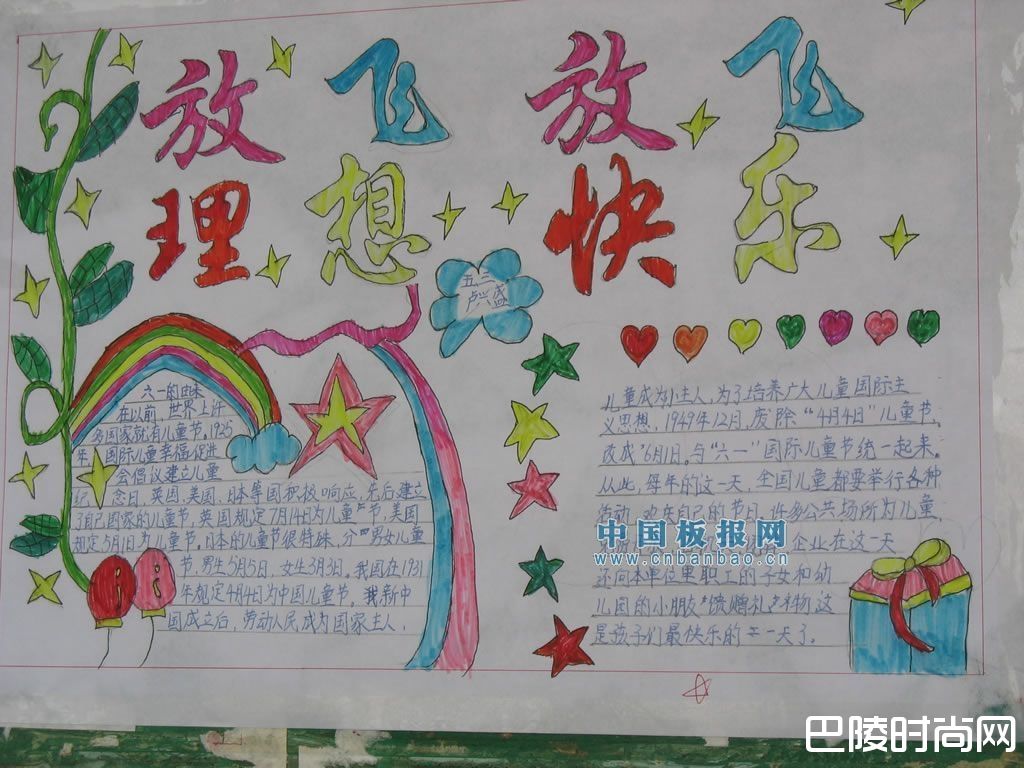 放飞放飞
理想快乐
五三
卢兴盛
六一的由来
在以前,世界上许
多国家就有儿童节。1925
年,国际儿童幸福促进
会倡议建立儿童
纪念日,英国、美国、日本等国积极响应,先后建立
了自己国家的儿童节,英国规定7月14日为儿童节,美国
规定5月1日为儿童节。日本的儿童节很特殊,分男女儿童
节,男生5月5日,女生3月3日。我国在1931
年规定4月4日为中国儿童节。我新中
国成立后,劳动人民成为国家主人,
儿童成为小主人,为了培养广大儿童国际主
义思想,1949年12月,废除“4月4日”儿童节,
改成“6月1日。与“六一”国际儿童节统一起来。
从此,每年的这一天,全国儿童都要举行各种
活动,欢庆自己的节日。许多公共场所为儿童
企业在这一天
还向本单位里职工的子女和幼
儿园的小朋友馈赠礼物,这
是孩子们最快乐的一天了。
中国板报网
www.cnbanbao.cn
巴陵时尚网